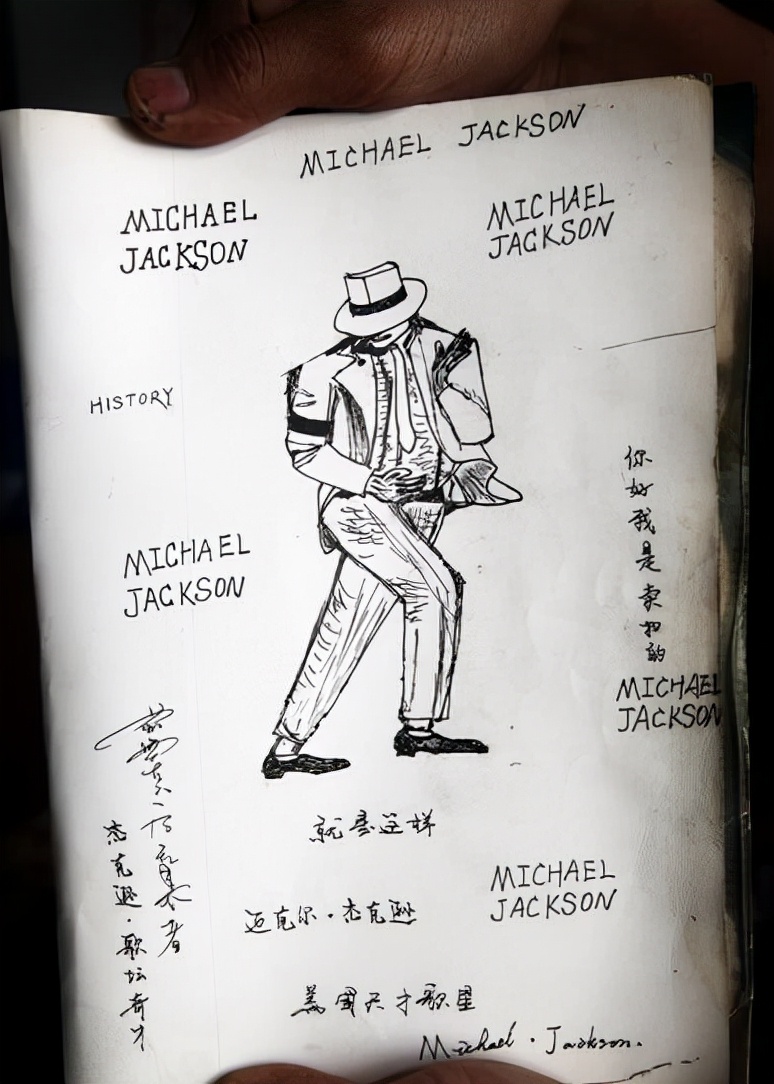 MICHAEL JACKSON
MICHAEL
JACKSON
MICHAEL
JACKSON
HISTORY
你好我是
MICHAEL
JACKSON
MICHAEL
JACKSON
杰克逊·歌坛奇才
就是这样
迈克尔·杰克逊
MICHAEL
JACKSON
美国天才歌星
Michael·Jackson.